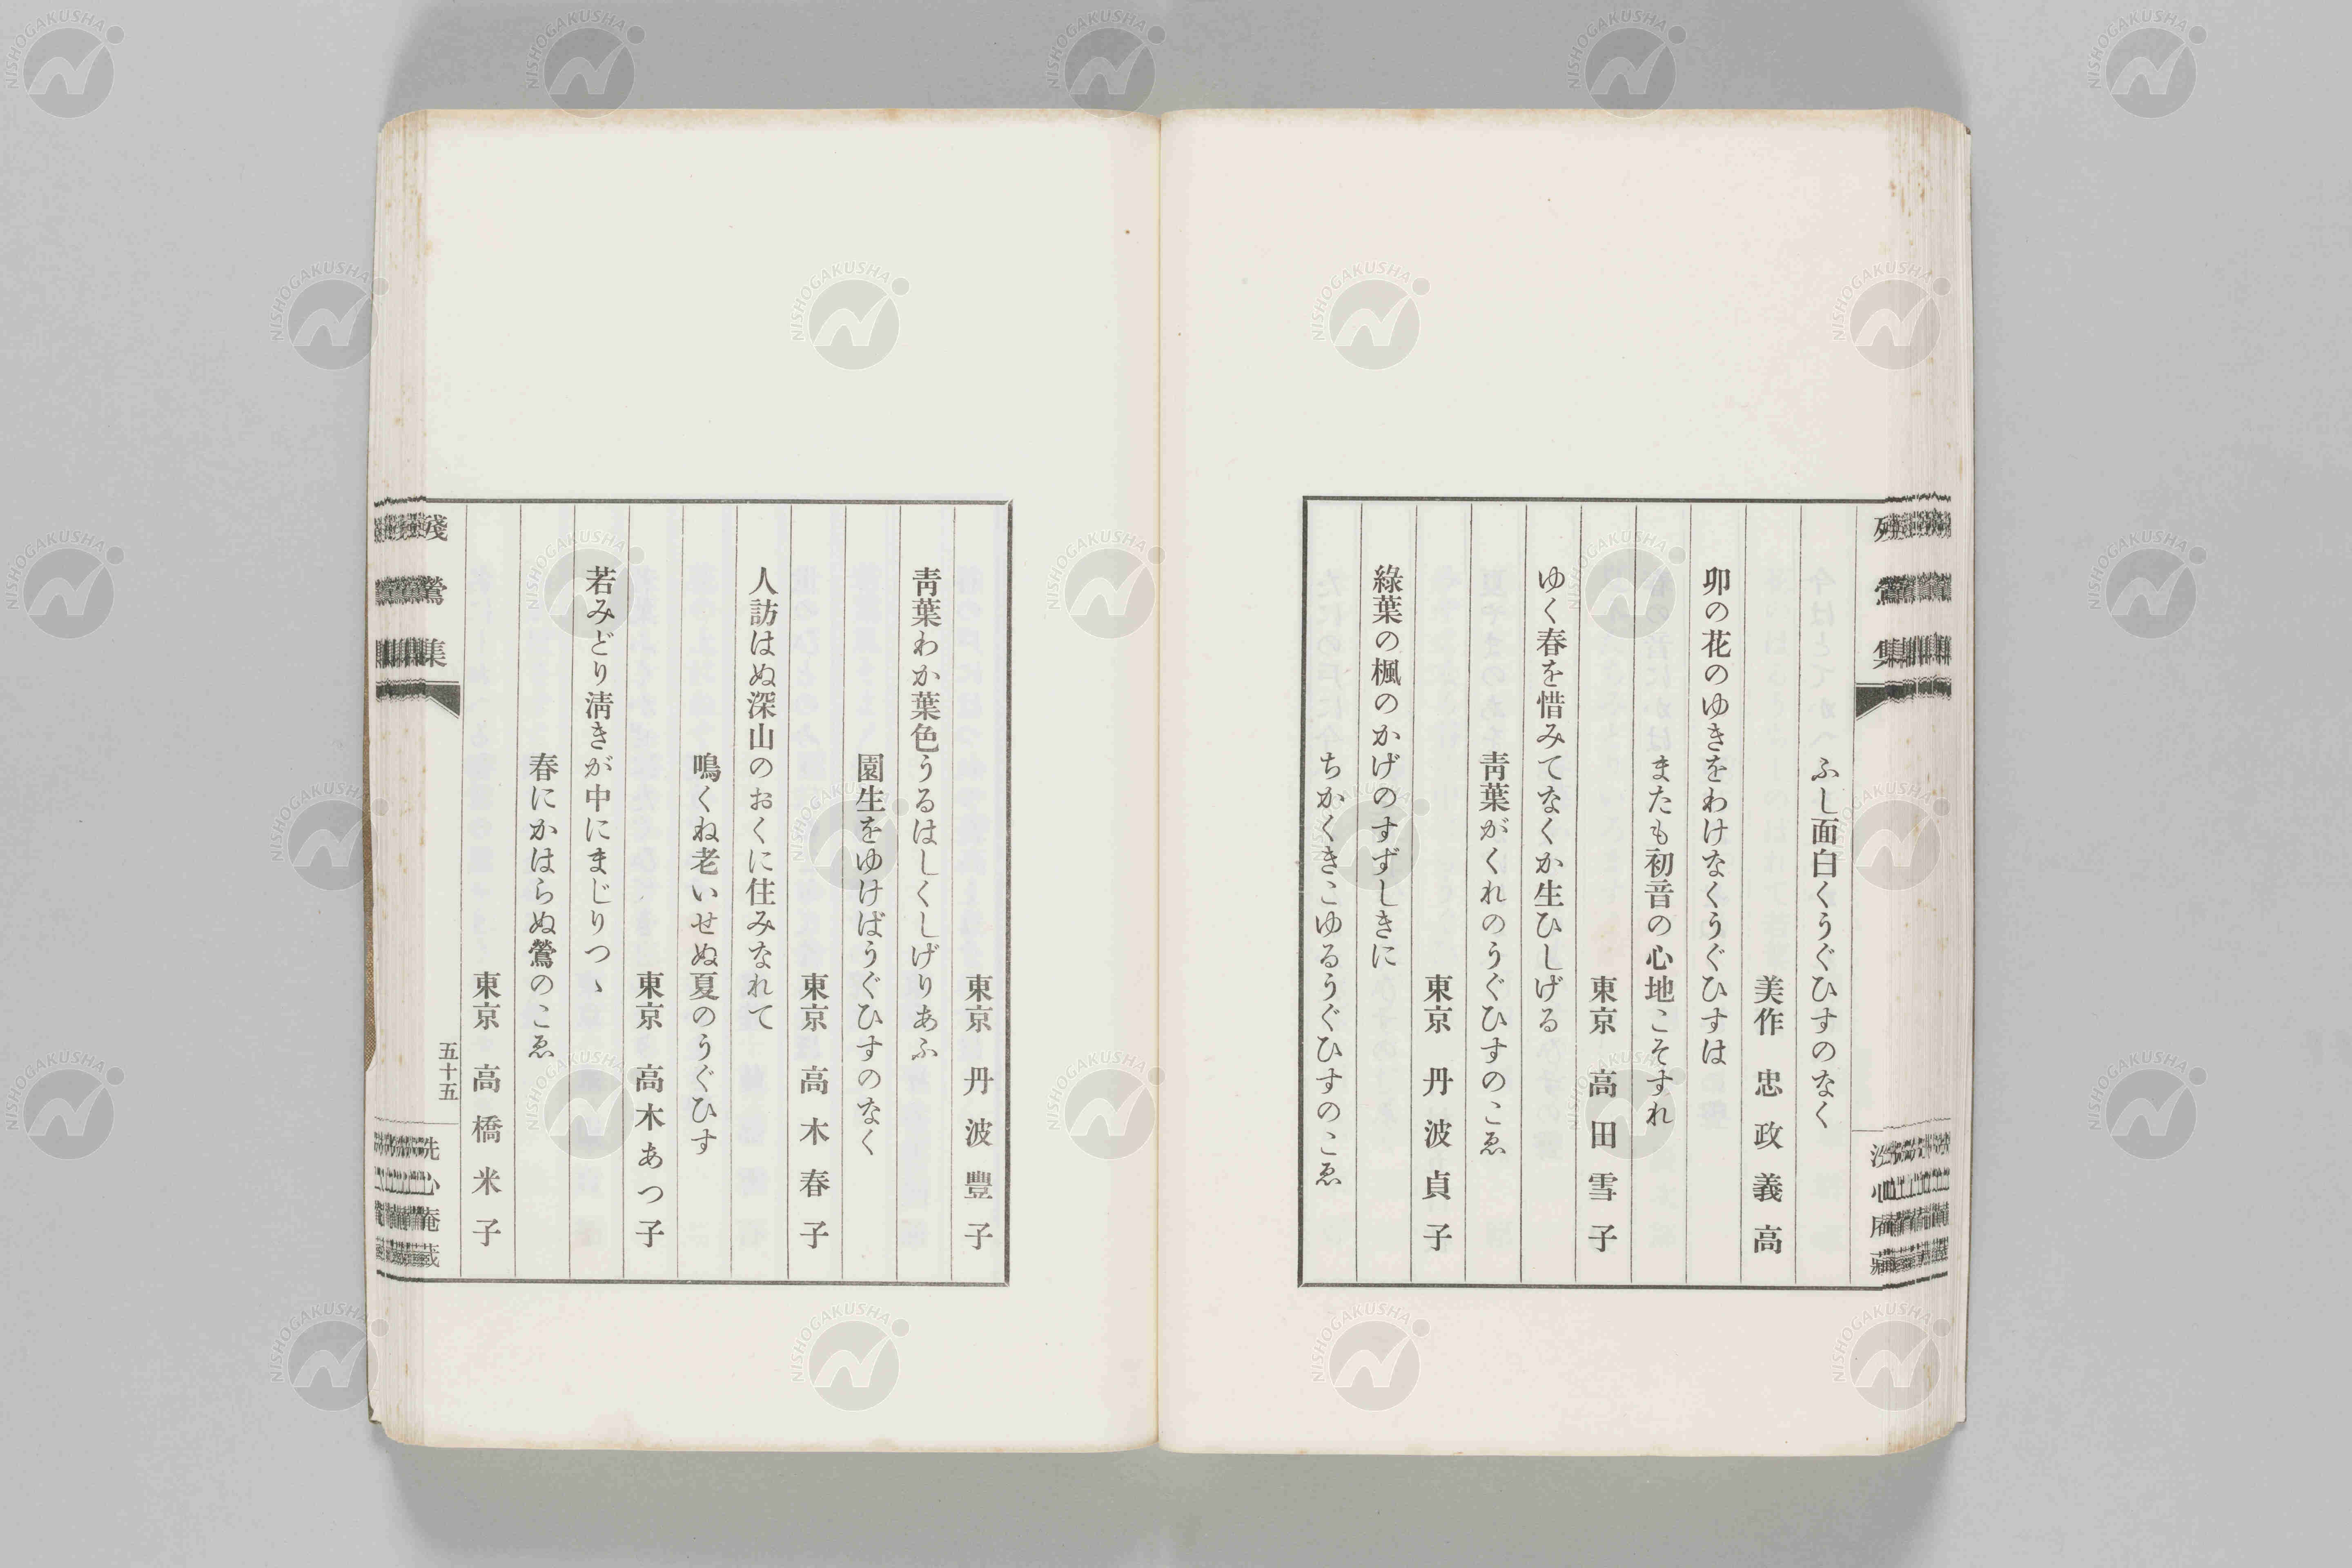 ふし面白くうぐひすのなく
美作 忠政義高
卯の花のゆきをわけなくうぐひすは
またも初音の心地こそすれ
東京 高田雪子
ゆく春を惜みてなくか生ひしげる
靑葉がくれのうぐひすのこゑ
東京 丹波貞子
綠葉の楓のかげのすずしきに
ちかくきこゆるうぐひすのこゑ
東京 丹波豐子
靑葉わか葉色うるはしくしげりあふ
園生をゆけばうぐひすのなく
東京 高木春子
人訪はぬ深山のおくに住みなれて
鳴くね老いせぬ夏のうぐひす
東京 高木あつ子
若みどり淸きが中にまじりつゝ
春にかはらぬ鶯のこゑ
東京 高橋米子
殘鶯集
五十五
洗心庵藏
NISHOGAKUSHA